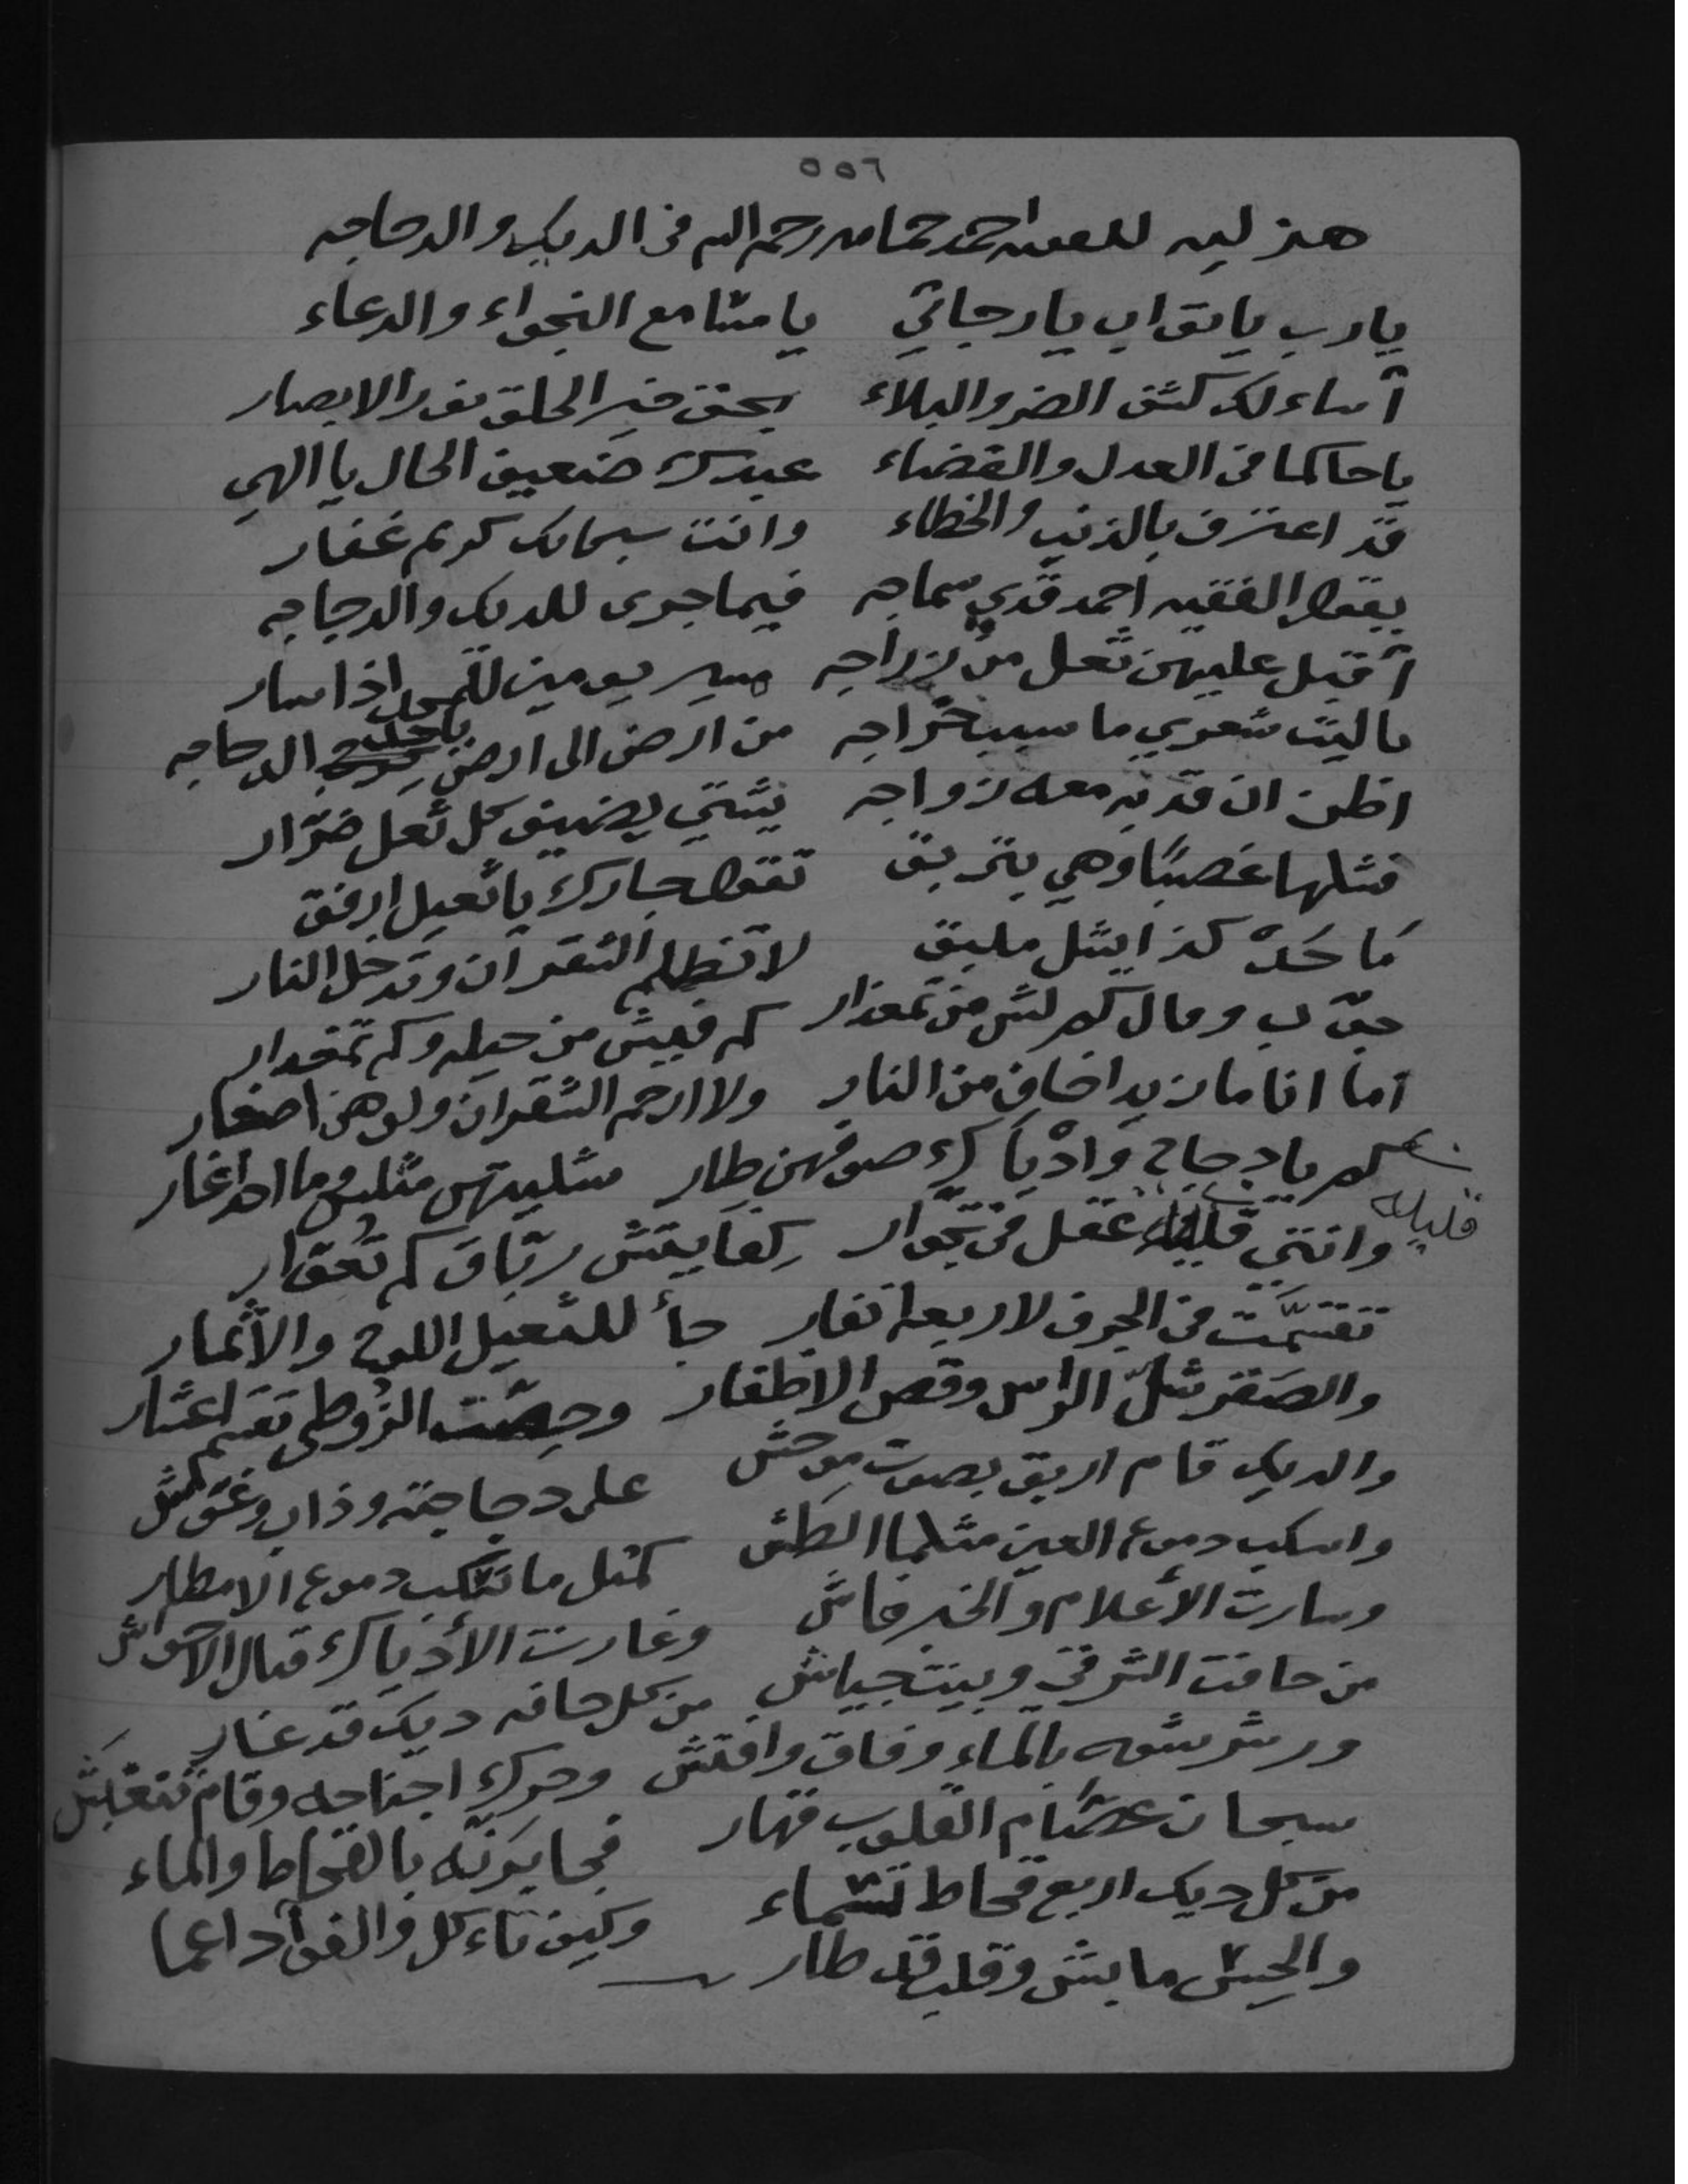 ٥٥٦
هزليه للفقيه احمد حمامه رحمه الله في الديك والدجاجه
يا رب يا تواب يا رجائي يا سامع النجواء والدعاء
أساءلك كشف الضر والبلاء بحق خير الخلق نور الابصار
يا حاكما في العدل والقضاء عبدك ضعيف الحال يا الهي
قد اعترف بالذنب والخطاء وانت سبحانك كريم غفار
يقول الفقيه احمد قدي سماجه فيما جرى للديك والدجاجه
أقبل عليهن ثعل من زراجه مسير يومين للمجد اذا سار
يا ليت شعري ما سبب خراجه من ارض الى ارض ياخذ الدجاجه
اظن ان قد به معه زواجه يشتي يضيف كل ثعل ضرّار
فشلها غصبًا وهي بتربق تقول جارك يا ثعيل ارفق
مَا حَدّ كذا يشل مليق لا تظلم الشقران وتدخل النار
جوّب وقال كم لش من تمعذار كم فيش من حيله وكم تمغدار
أما انا ما زيد اخاف من النار ولا ارحم الشقران ولو هن اصغار
كم يا دجاج وادياك صوفهن طار شليتهن مثلش وما احد اغار
وانتي قليله عقل في تجوار كفا يقش رتاق كم تعوار
قليله
تقسّمت في الجرف لاربعة انفار جاء للثعيل اللوح والأثمار
والصقر شلّ الراس وقص الاظفار وحصّت الزوطي تقسم اعشار
والديك قام اربق بصوت موحش على دجاجته وذاب وغوش
واسكب دموع العين مثلما الطش كمثل ما تسكب دموع الامطار
وسارت الأعلام والخبر فاش وغارت الأدياك قبال الاحواش
من حافت الشرقي وبيت جياش من كل حافه ديك قد غار
ورشرشوه بالماء وفاق وافتش وحرك اجناحه وقام تنعبش
سبحان عصّام القلوب قهار فجابوته بالقحاط والماء
من كل ديك اربع قحاط تسماء وكيف تاءكل والفؤاد اعما
والحِس مابش وقلب قد طار